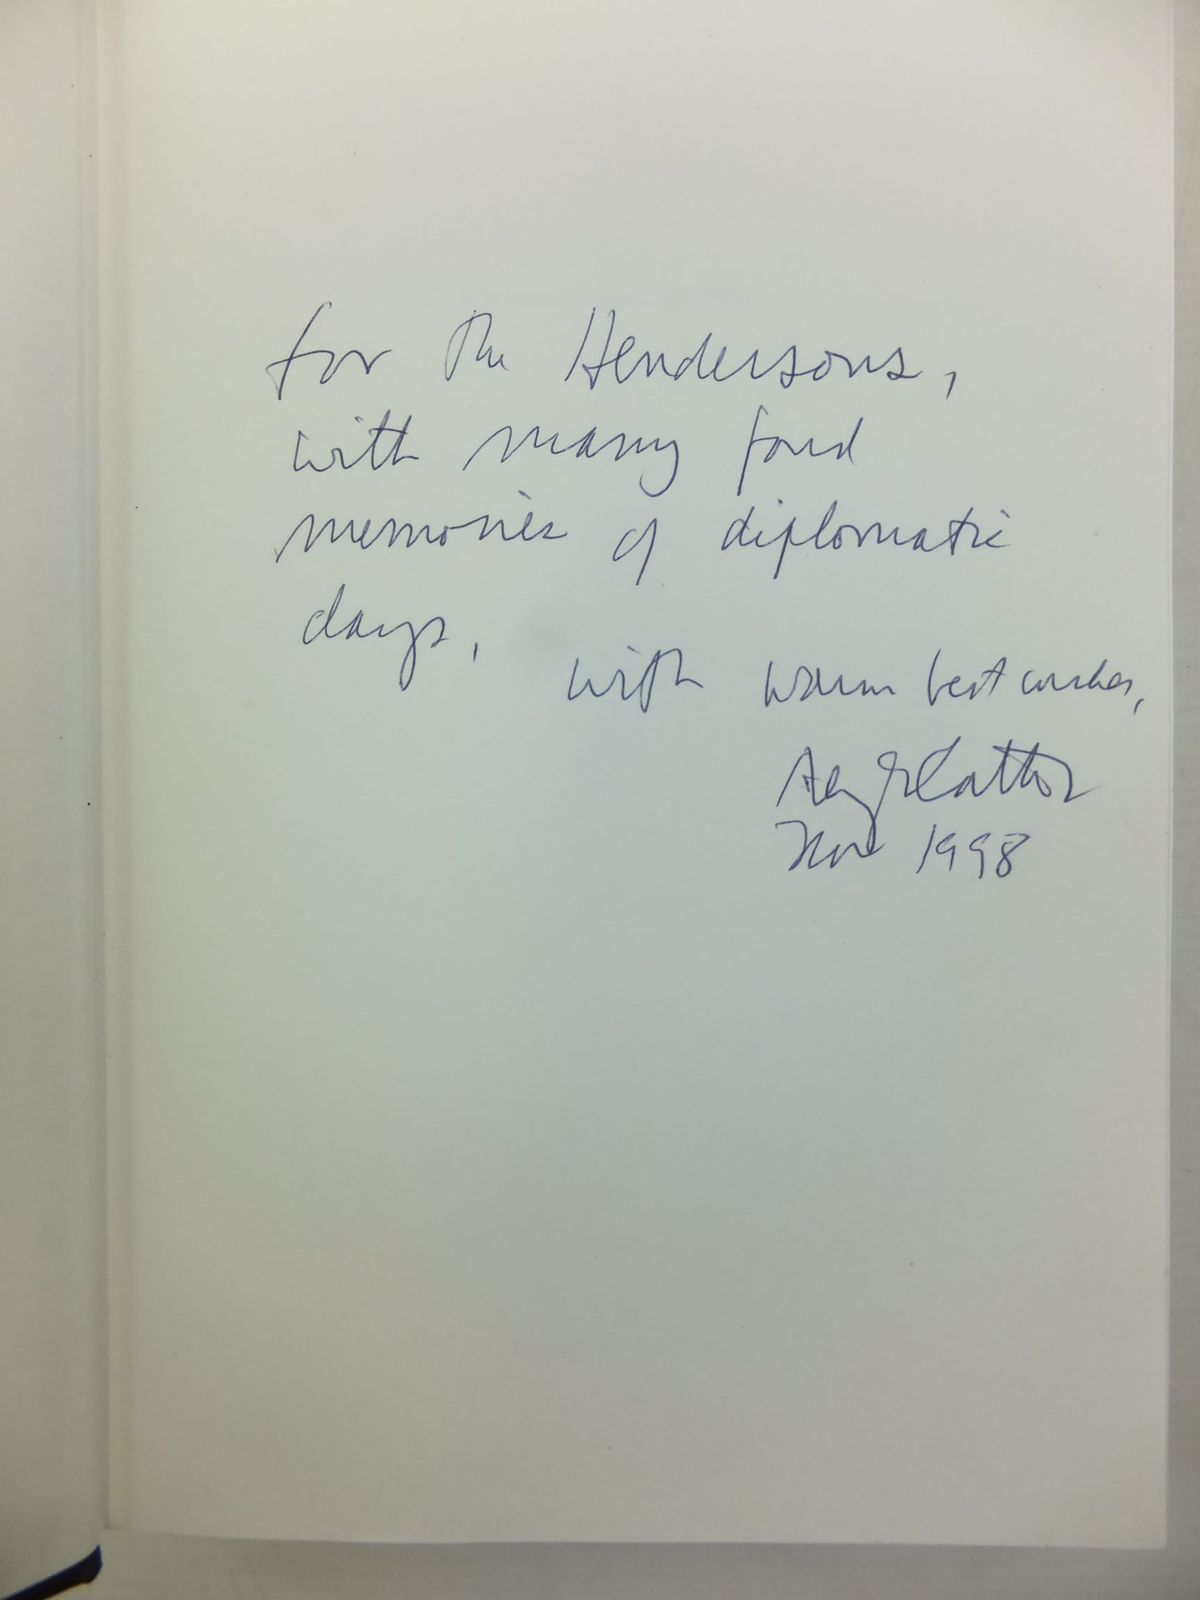 for the Hendersons,
with many fond
memories of diplomatic
days,
with warm best wishes,
Nov 1998